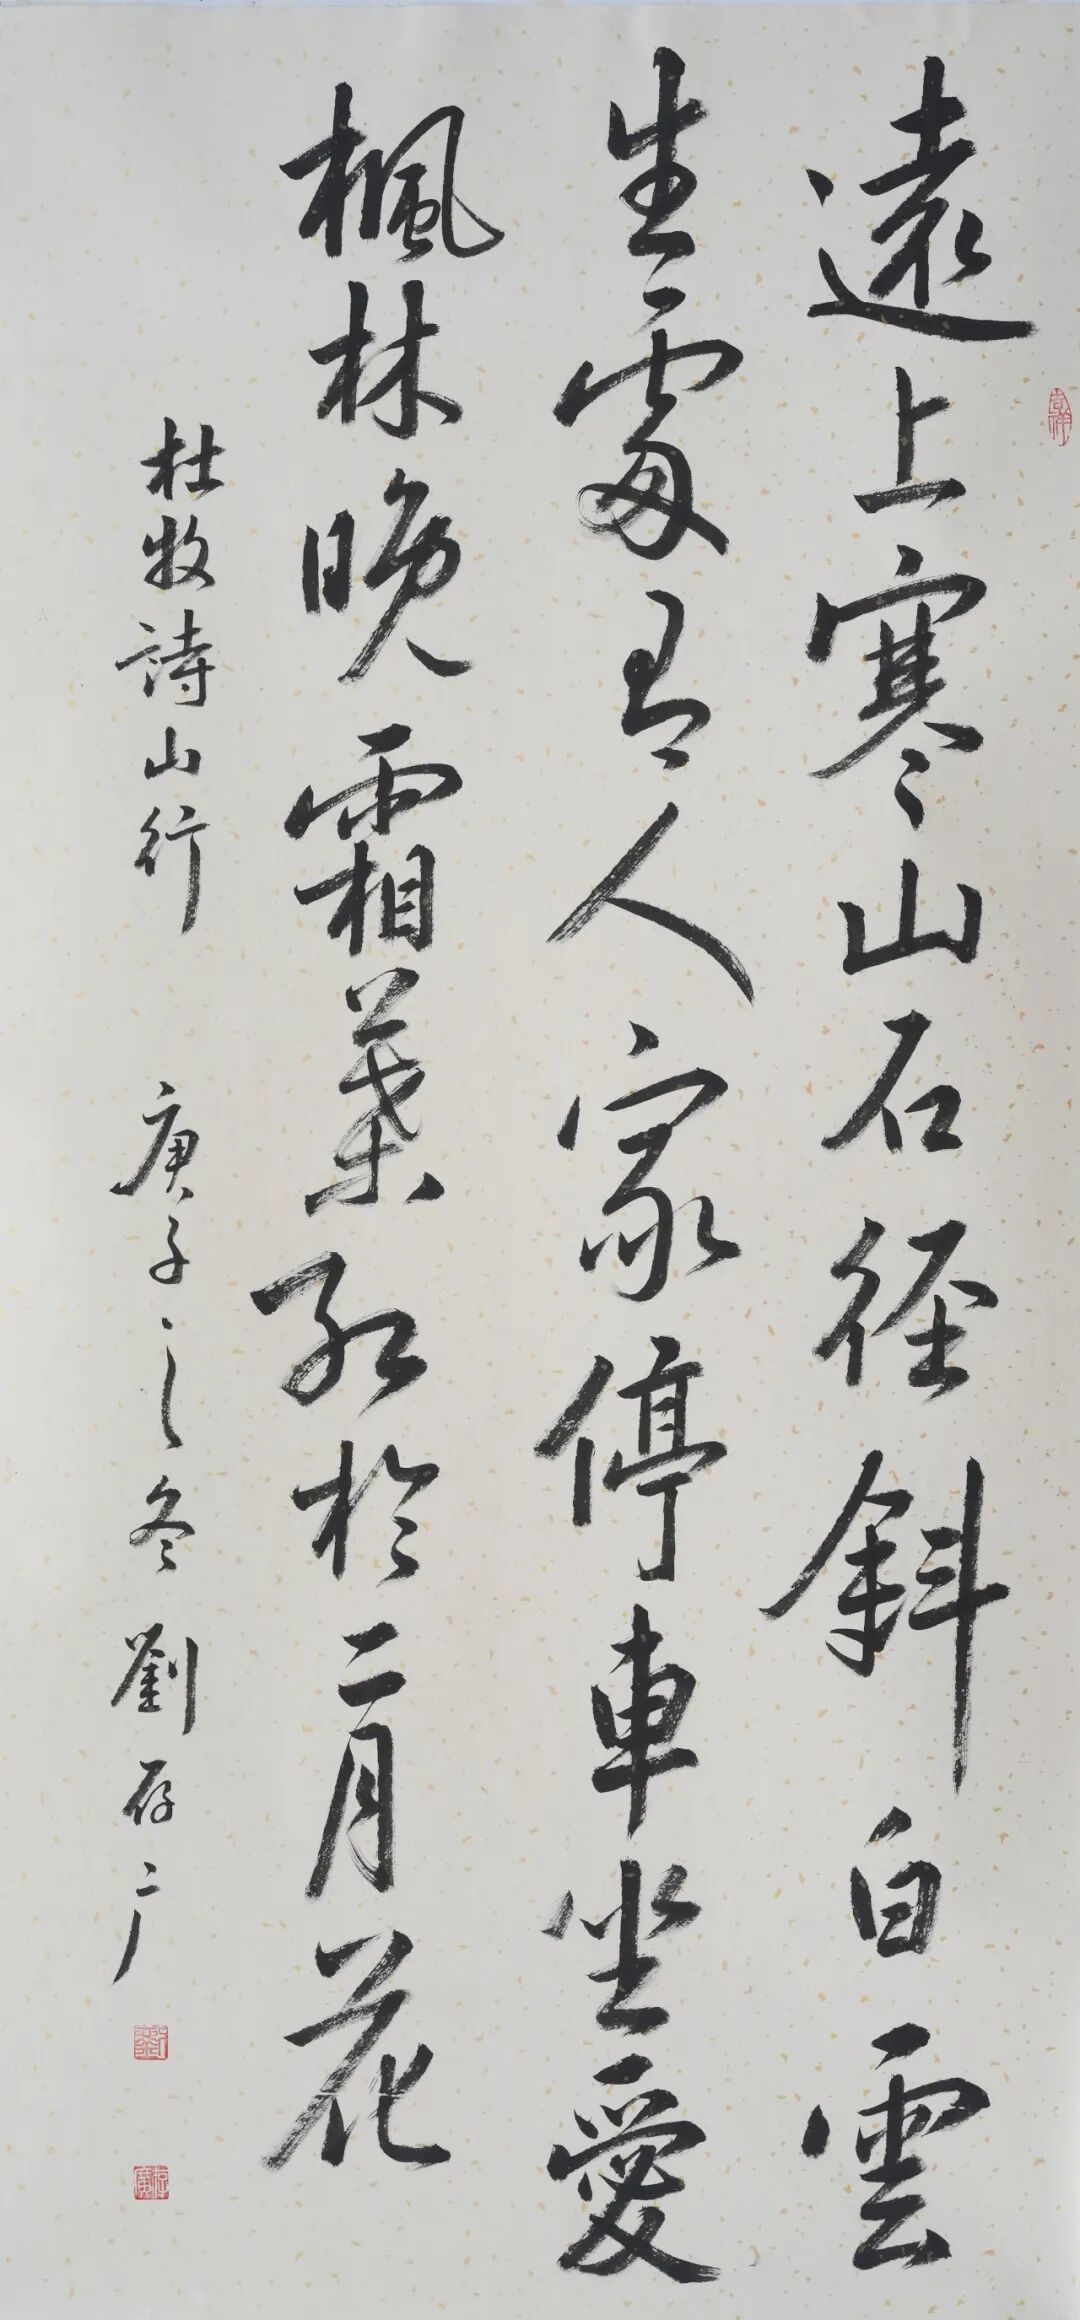 遠上寒山石径斜白雲
生處有人家停車坐愛
楓林晚霜葉紅於二月花
杜牧詩山行 庚子之冬 劉存广
存廣